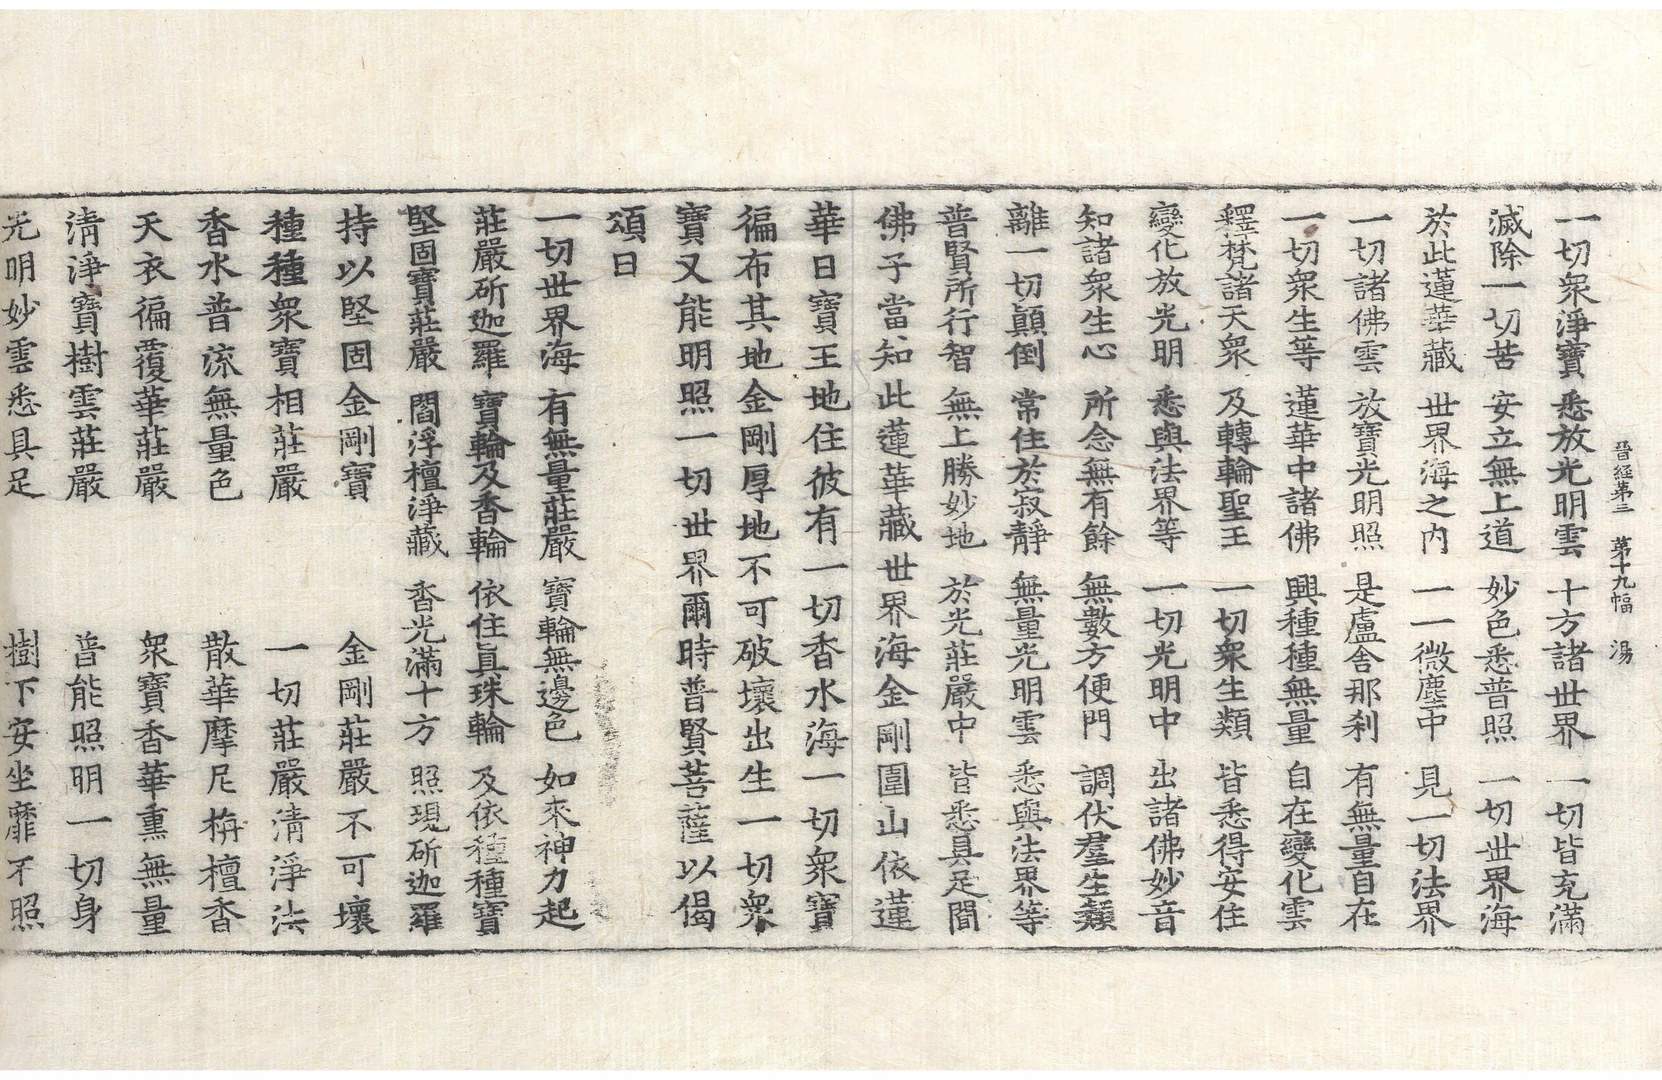 晉經第三　第十九幅　湯
一切衆淨寶　悉放光明雲　十方諸世界　一切皆充滿
滅除一切苦　安立無上道　妙色悉普照　一切世界海
於此蓮華藏　世界海之內　一一微塵中　見一切法界
一切諸佛雲　放寶光明照　是盧舍那刹　有無量自在
一切衆生等　蓮華中諸佛　興種種無量　自在變化雲
釋梵諸天衆　及轉輪聖王　一切衆生類　皆悉得安住
變化放光明　悉與法界等　一切光明中　出諸佛妙音
知諸衆生心　所念無有餘　無數方便門　調伏羣生類
離一切顛倒　常住於寂靜　無量光明雲　悉與法界等
普賢所行智　無上勝妙地　於光莊嚴中　皆悉具足聞
佛子當知此蓮華藏世界海金剛圍山依蓮
華日寶王地住彼有一切香水海一切衆寶
徧布其地金剛厚地不可破壞出生一切衆
寶又能明照一切世界爾時普賢菩薩以偈
頌曰
一切世界海　有無量莊嚴　寶輪無邊色　如來神力起
莊嚴斫迦羅　寶輪及香輪　依住眞珠輪　及依種種寶
堅固寶莊嚴　閻浮檀淨藏　香光滿十方　照現斫迦羅
持以堅固金剛寶　金剛莊嚴不可壞
種種衆寶相莊嚴　一切莊嚴清淨法
香水普流無量色　散華摩尼栴檀香
天衣徧覆華莊嚴　衆寶香華熏無量
清淨寶樹雲莊嚴　普能照明一切身
光明妙雲悉具足　樹下安坐靡不照